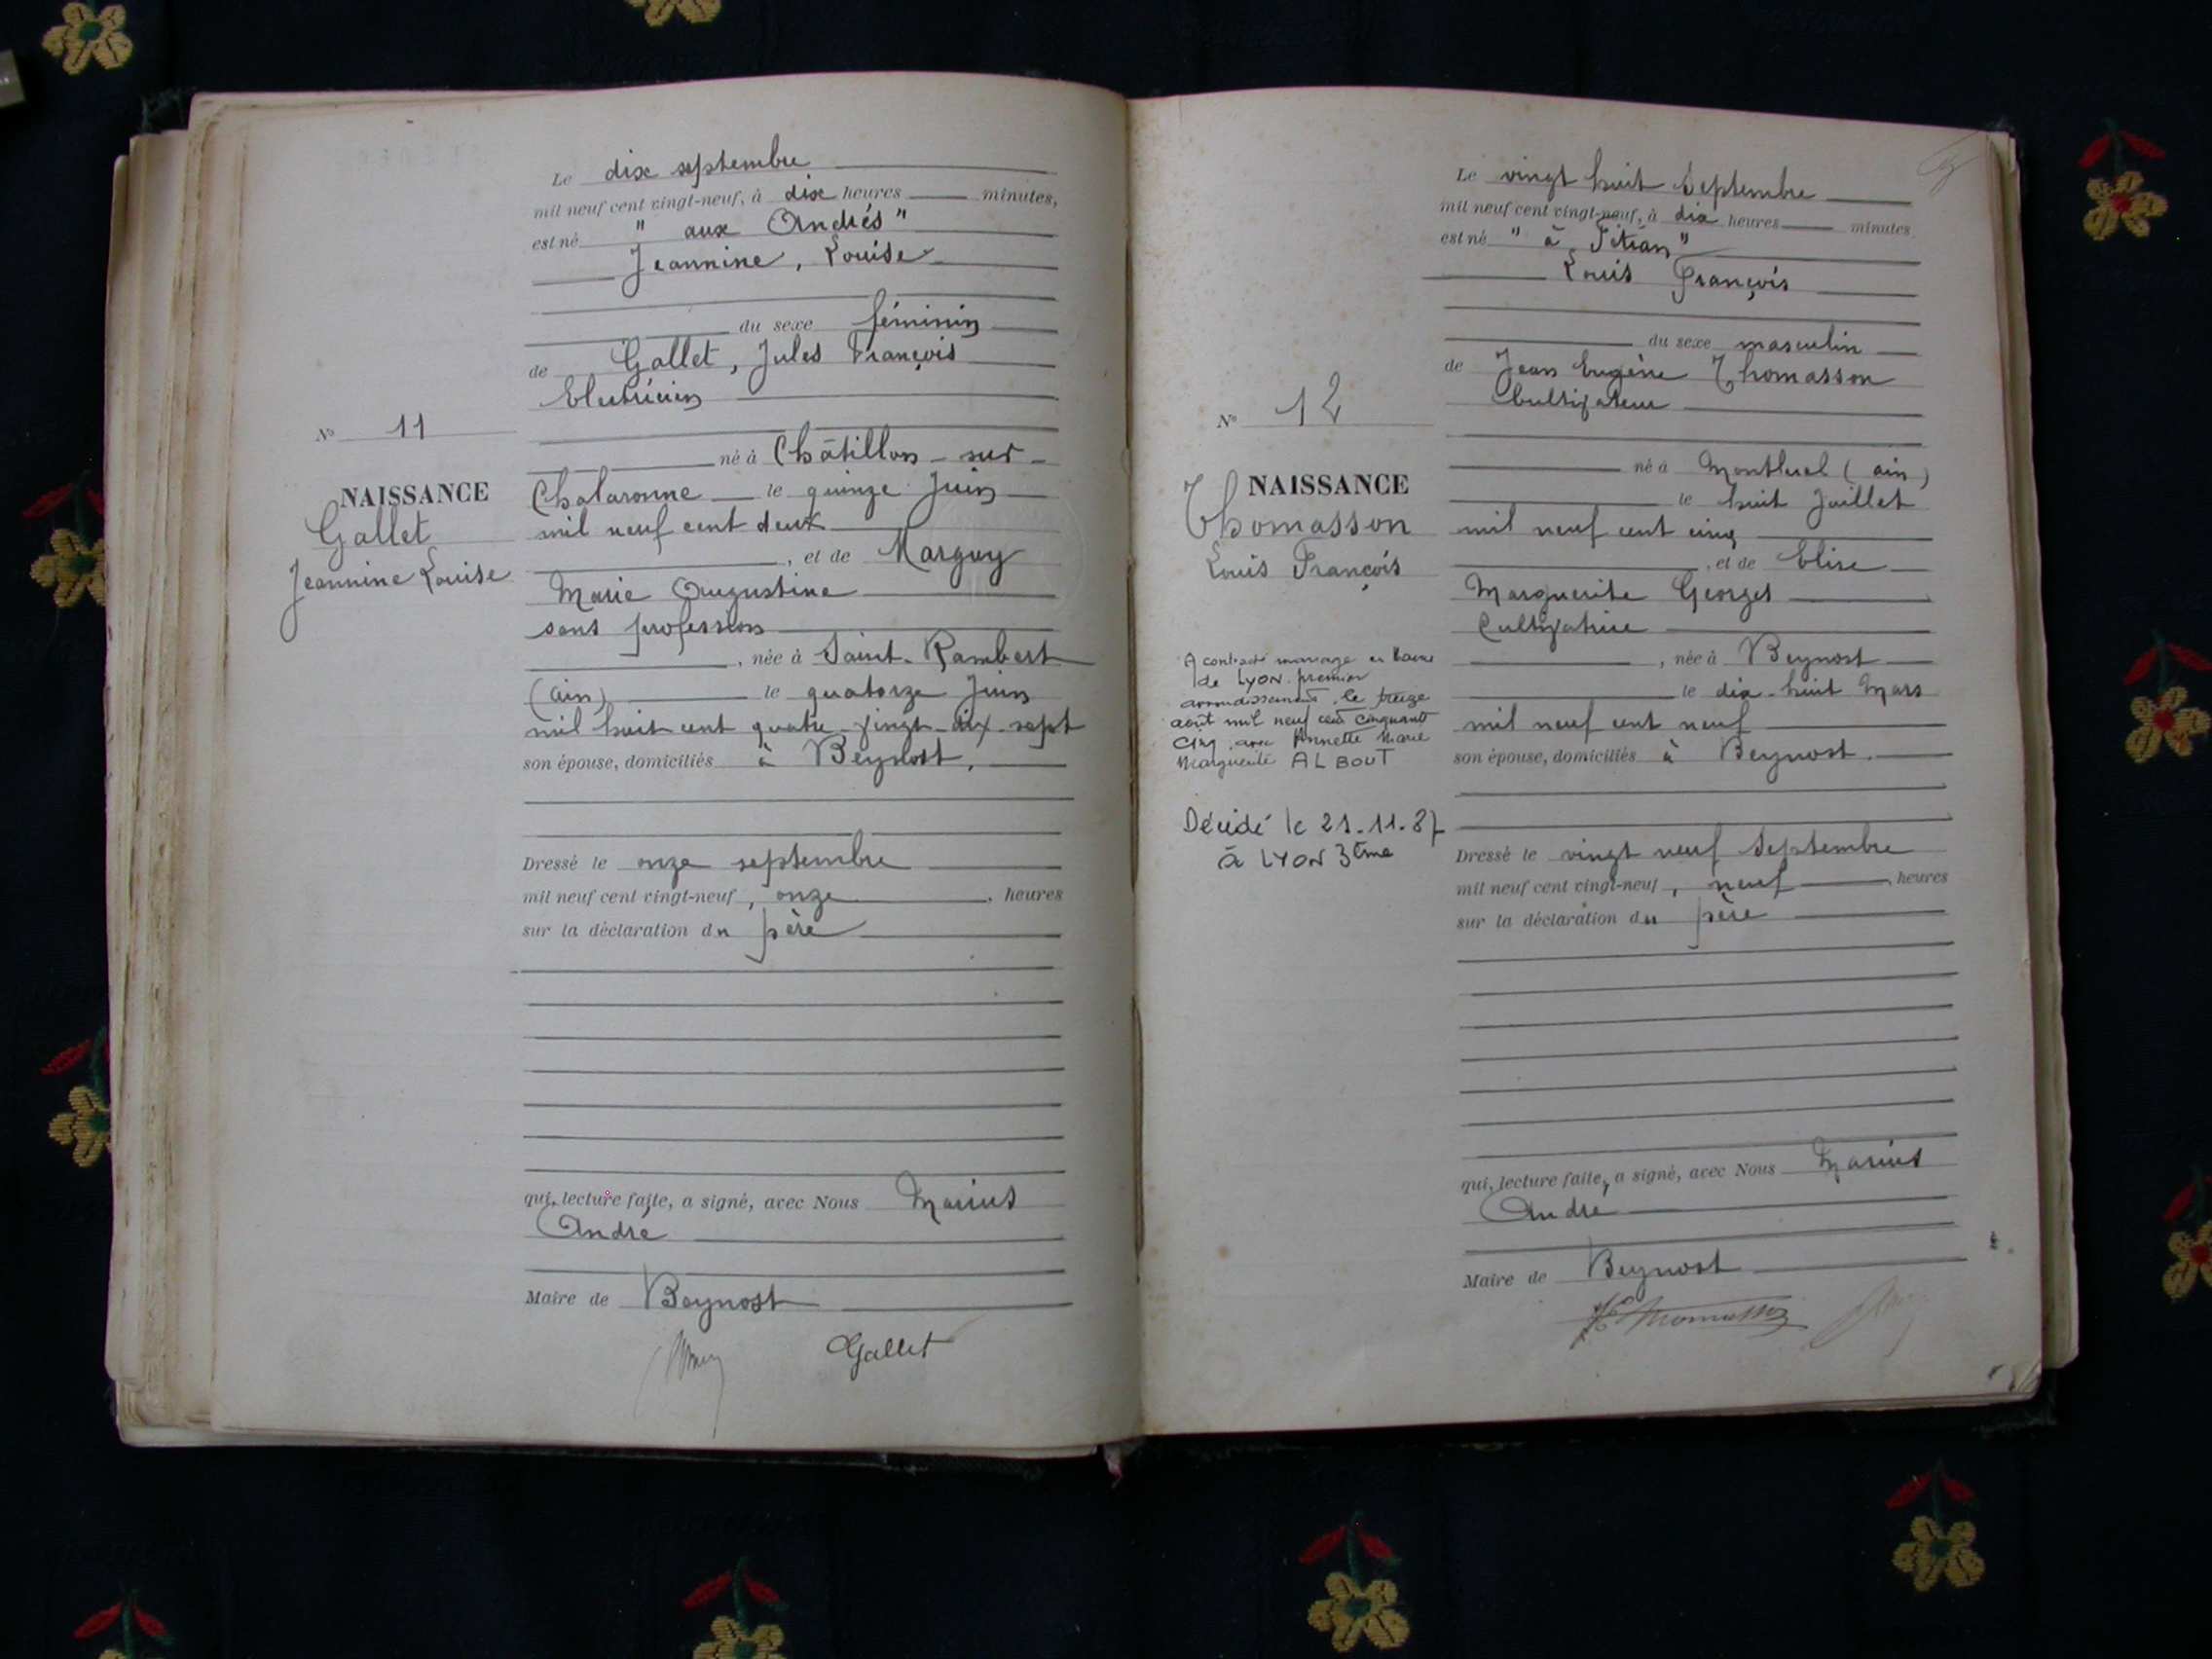 Le dix septembre
mil neuf cent vingt-neuf, à dix heures minutes,
est né " aux Andrés "
Jeannine, Louise
du sexe féminin
de Gallet, Jules François
Electricien
N° 11
né à Châtillon-sur-
NAISSANCE
Chalaronne le quinze Juin
Gallet
mil neuf cent deux
Jeannine Louise
, et de Marguy
Marie Augustine
sans profession
, née à Saint-Rambert
(Ain) le quatorze Juin
mil huit cent quatre-vingt-dix-sept
son épouse, domiciliés à Beynost,
Dressé le onze septembre
mil neuf cent vingt-neuf, onze , heures
sur la déclaration du père
qui, lecture faite, a signé, avec Nous Marius
André
Maire de Beynost
Gallet
Le vingt huit Septembre
mil neuf cent vingt-neuf, à dix heures minutes
est né " à "
Louis François
du sexe masculin
de Jean Eugène Thomasson
Cultivateur
N° 12
né à Montluel (Ain)
NAISSANCE
le huit Juillet
Thomasson
mil neuf cent cinq
Louis François
, et de Elise
Marguerite Georges
Cultivatrice
, née à Beynost
le dix-huit Mars
mil neuf cent neuf
son épouse, domiciliés à Beynost.
A contracté mariage en Mairie
de LYON premier
arrondissement, le treize
août mil neuf cent cinquante
cinq, avec Annette Marie
Marguerite ALBOUT
Décédé le 21.11.87
à LYON 3ème
Dressé le vingt neuf Septembre
mil neuf cent vingt-neuf, neuf , heures
sur la déclaration du père
qui, lecture faite, a signé, avec Nous Marius
André
Maire de Beynost
Thomasson